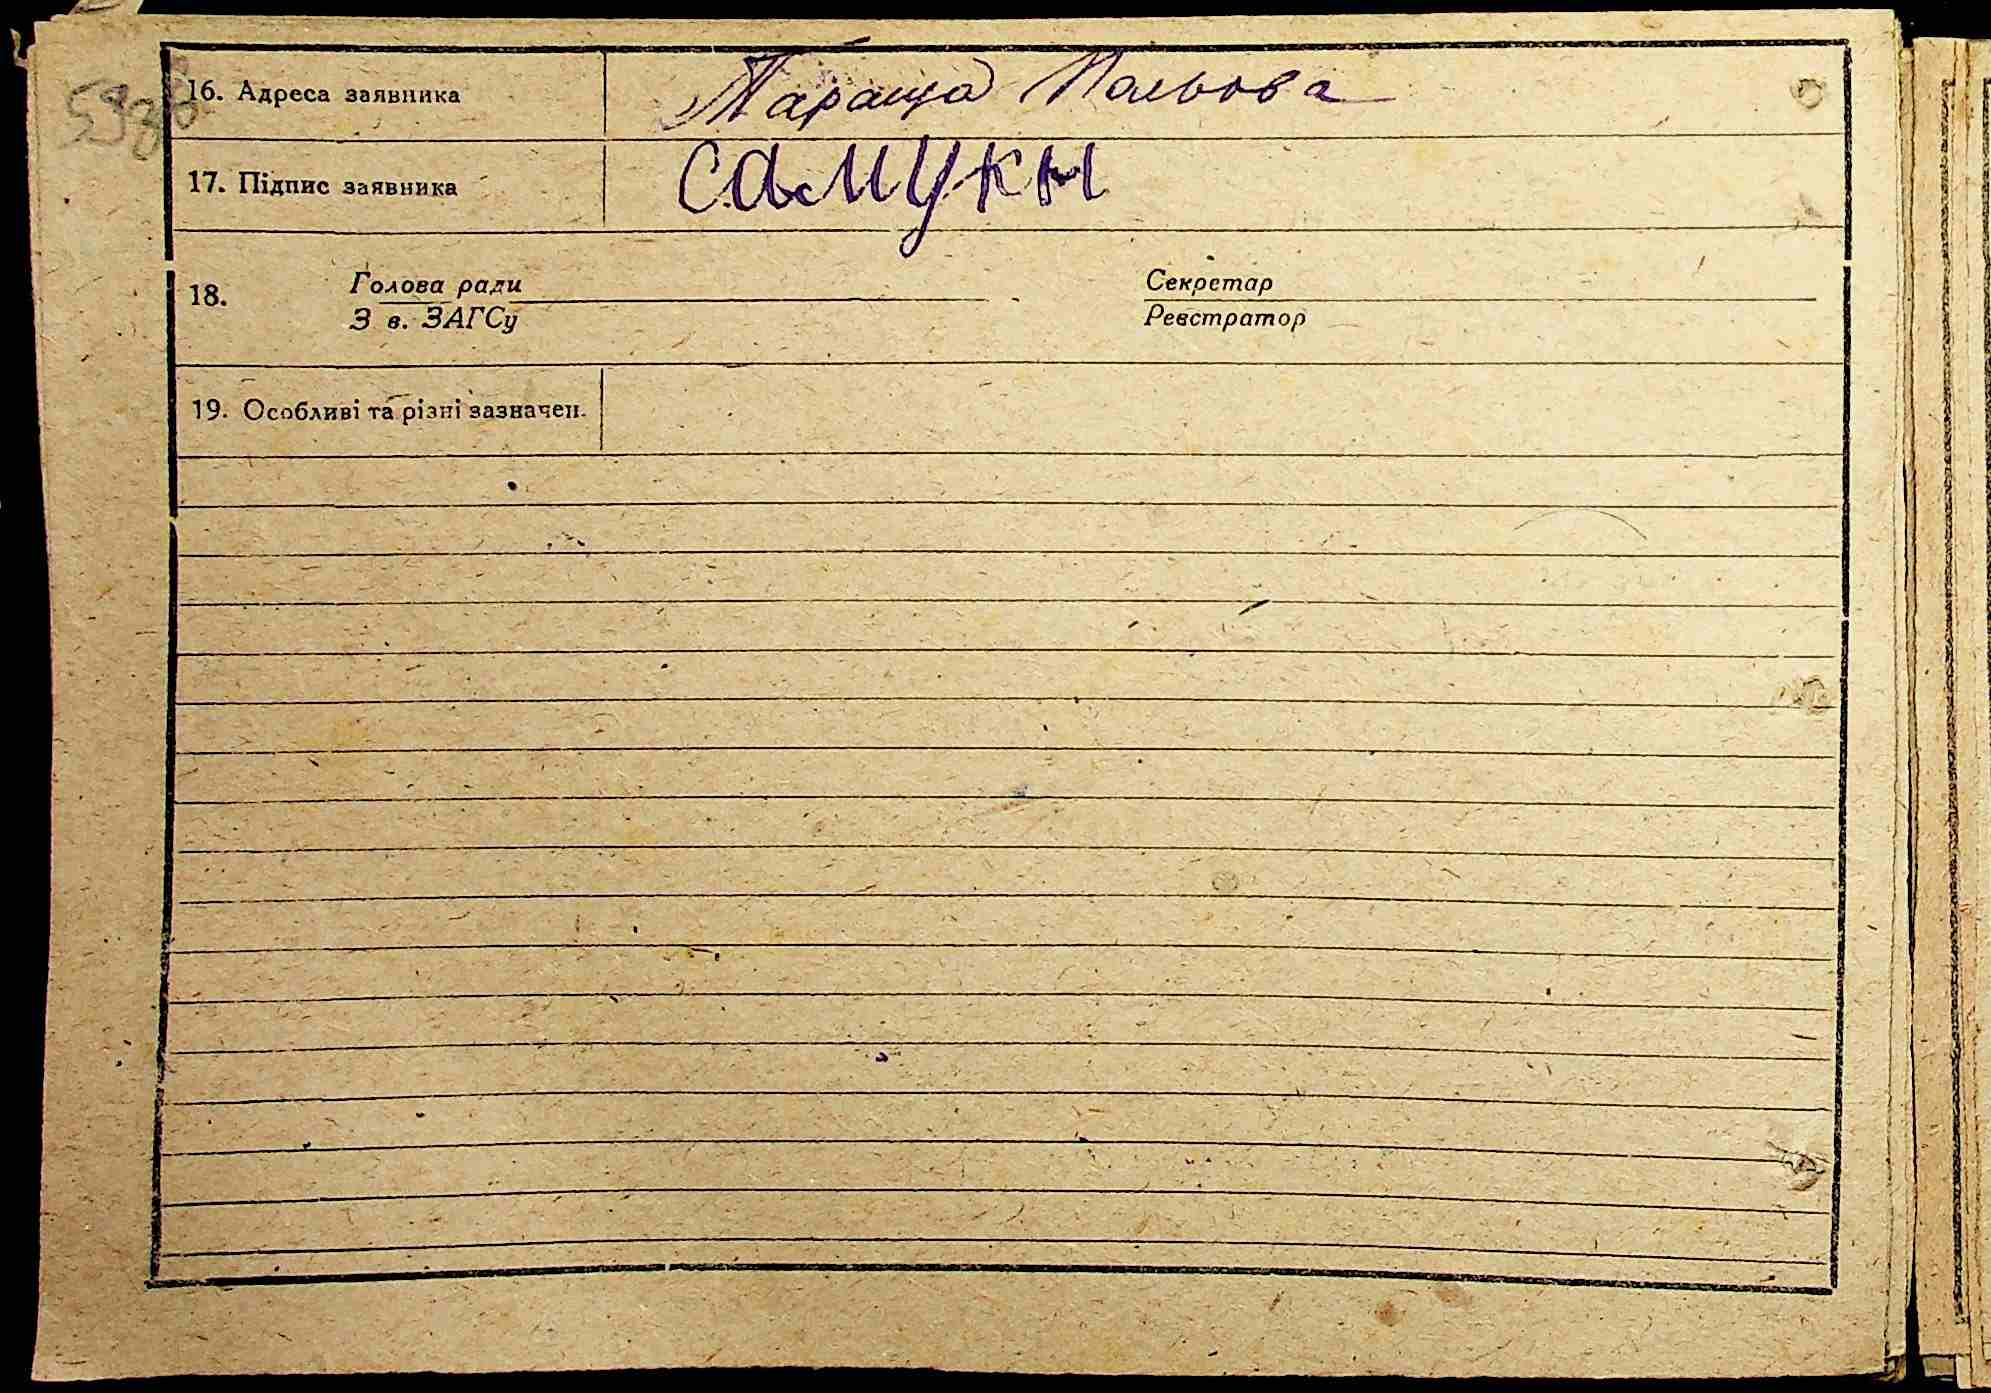 16. Адреса заявника Тараща Польова
17. Підпис заявника Самукн
18. Голова ради Секретар
З в. ЗАГСу Реєстратор
19. Особливі та різні зазначен.